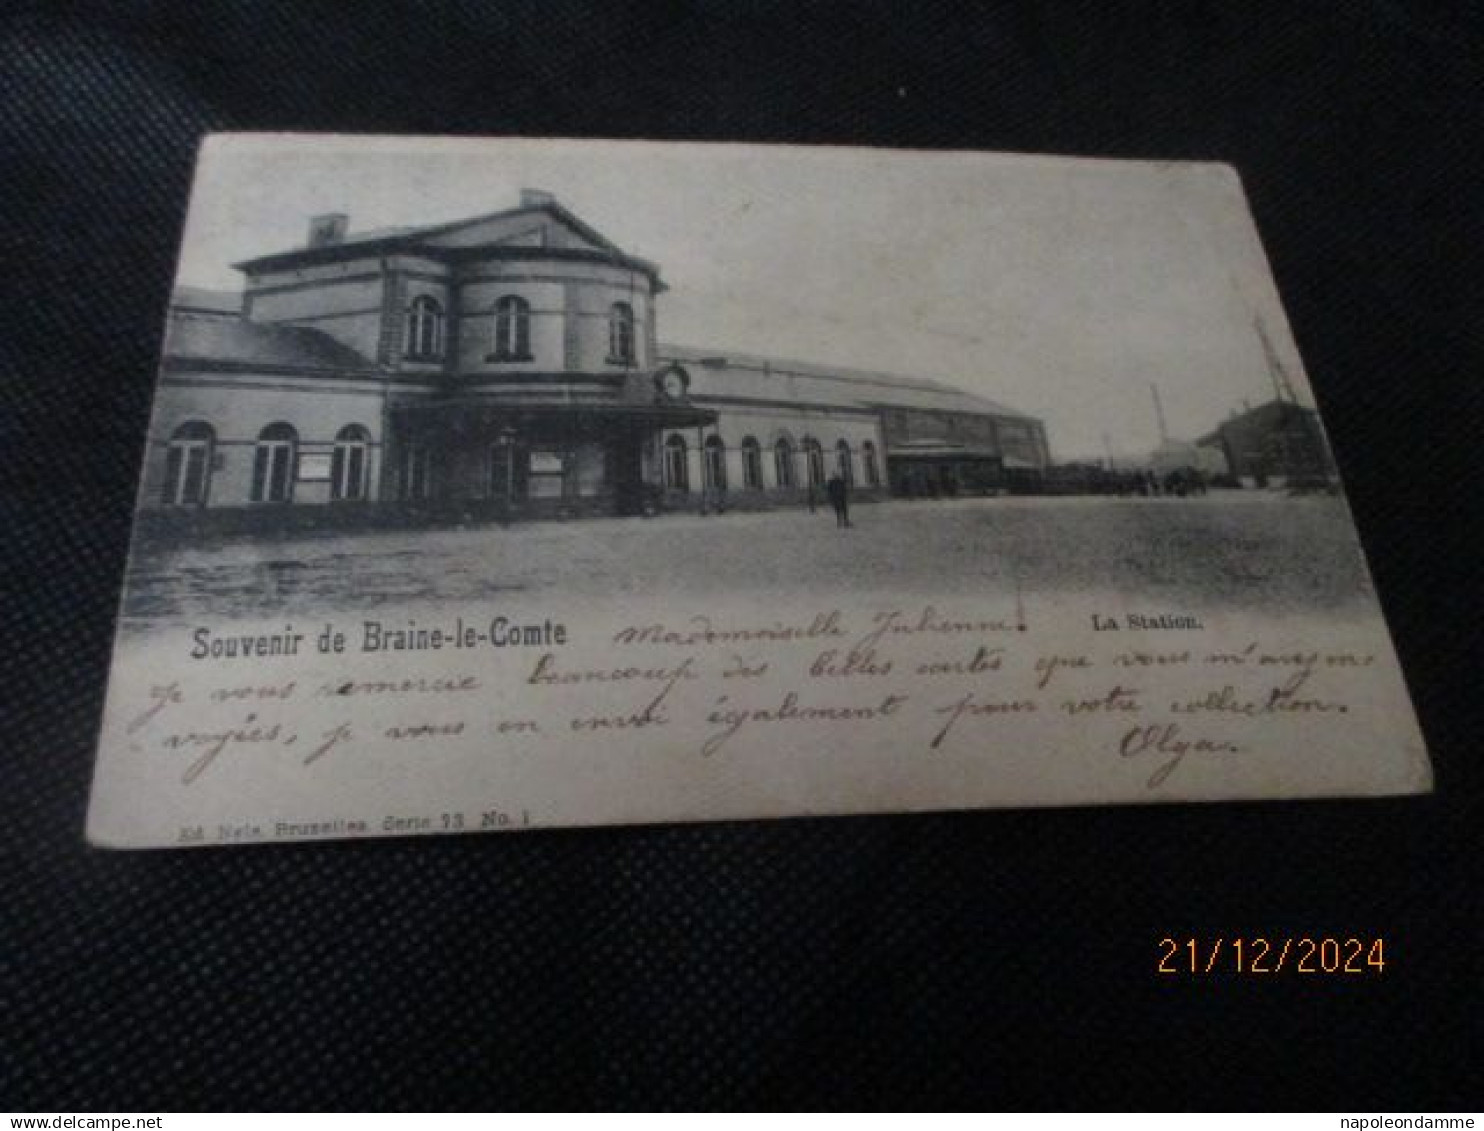 Souvenir de Braine-le-Comte Mademoiselle Julienne. La Station.
Je vous remercie beaucoup des belles cartes que vous m'avez
voyées, je vous en envoi également pour votre collection.
Olga.
Ed. Nels, Bruxelles, Serie 93 No. 1
21/12/2024
napoleondamme